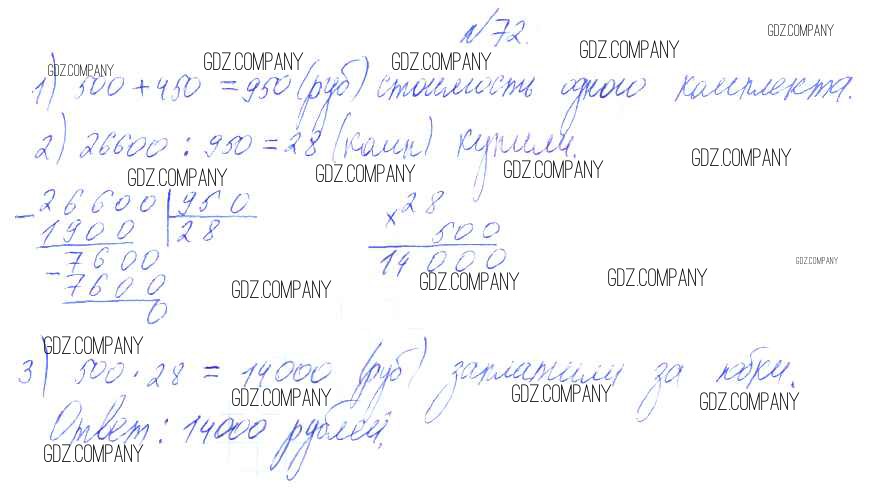 №72.
GDZ.COMPANY
GDZ.COMPANY GDZ.COMPANY GDZ.COMPANY GDZ.COMPANY
1) 500 + 450 = 950 (руб) стоимость одного комплекта.
2) 26600 : 950 = 28 (комп) купили.
GDZ.COMPANY GDZ.COMPANY GDZ.COMPANY GDZ.COMPANY
- 26600 | 950
1900 28
- 7600
7600
0
× 28
500
14 000
GDZ.COMPANY GDZ.COMPANY GDZ.COMPANY GDZ.COMPANY
GDZ.COMPANY
3) 500 · 28 = 14000 (руб) заплатили за юбки.
GDZ.COMPANY GDZ.COMPANY GDZ.COMPANY
Ответ: 14000 рублей.
GDZ.COMPANY